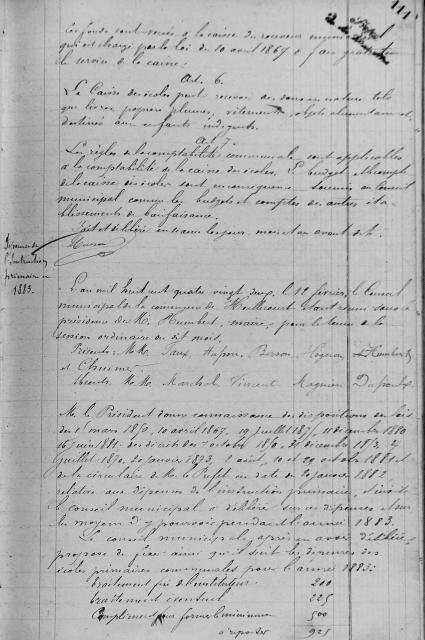 111
Les fonds sont versés à la caisse du receveur municipal
qui est chargé par la loi du 10 avril 1867 de faire gratuitement
le service de la caisse.
Art. 6.
La Caisse des écoles peut recevoir des dons en nature tels
que livres, papiers, plumes, vêtements, objets alimentaires
destinés aux enfants indigents.
Art. 7.
Les règles de la comptabilité communale sont applicables
à la comptabilité de la caisse des écoles. Le budget et le compte
de la caisse des écoles sont en conséquence soumis au Conseil
municipal comme les budgets et comptes des autres éta-
blissements de bienfaisance.
Fait et délibéré en séance les jour, mois et an avant dits.
Dépenses de
l'Instruction
primaire en
1883.
L'an mil huit cent quatre vingt deux, le 12 février, le Conseil
municipal de la commune de étant réuni sous la
présidence de M. Humbert, maire, pour la tenue de la
session ordinaire du dit mois.
Présents: M.M. Humbert
et
Absents M.M. Marchal Vincent Magnien
M. le Président donne connaissance des dispositions des lois
des 15 mars 1850, 10 avril 1867, 19 juillet 1875, 1880
16 juin 1881, des décrets des 7 octobre 1850, 31 décembre 1853, 4
juillet 1890, 20 janvier 1873, 2 août, 10 et 29 octobre 1881 et
de la circulaire de M. le Préfet en date du 20 janvier 1882
relative aux dépenses de l'instruction primaire, et invite
le conseil municipal à délibérer sur ces dépenses et sur
les moyens d'y pourvoir pendant l'année 1883.
Le conseil municipal, après en avoir délibéré,
propose de fixer ainsi qu'il suit les dépenses des
écoles primaires communales pour l'année 1883:
Traitement fixe de l'instituteur 200
traitement éventuel 225
Complément pour former le minimum 500
à reporter 925